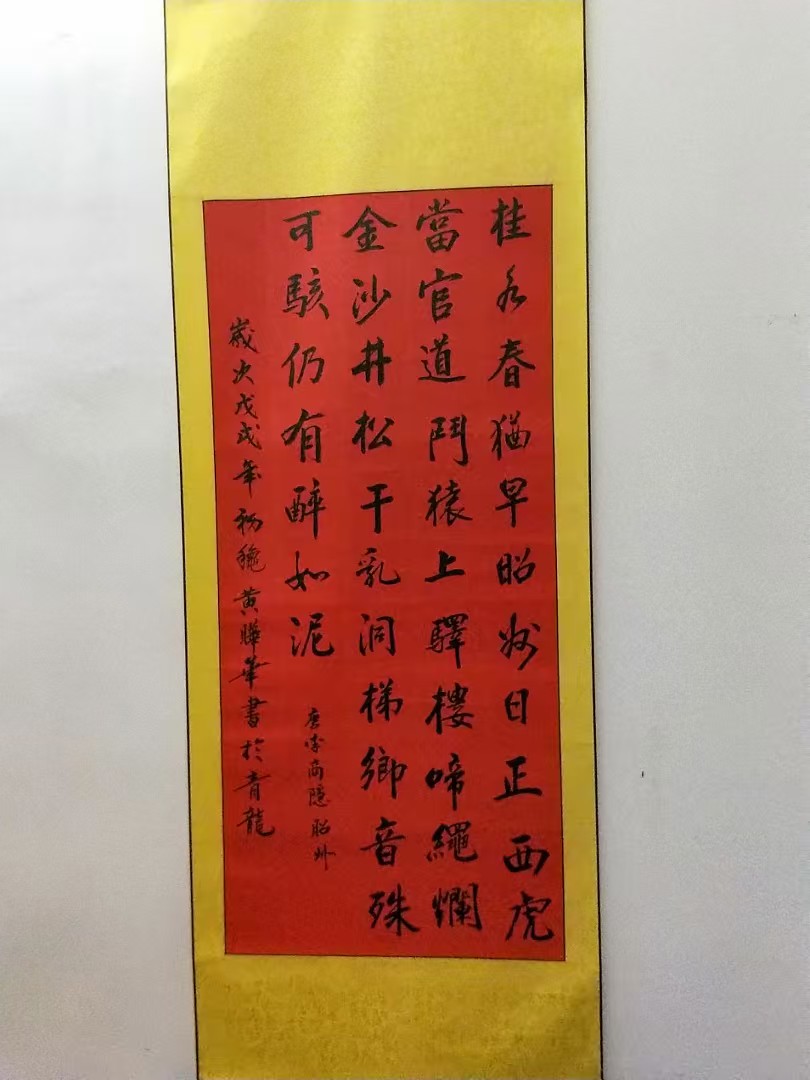 桂水春猶早昭州日正西虎
當官道鬥猿上驛樓啼繩爛
金沙井松干乳洞梯鄉音殊
可駭仍有醉如泥
唐李商隱昭州
歲次戊戌年初龝黄曄華書於青龍